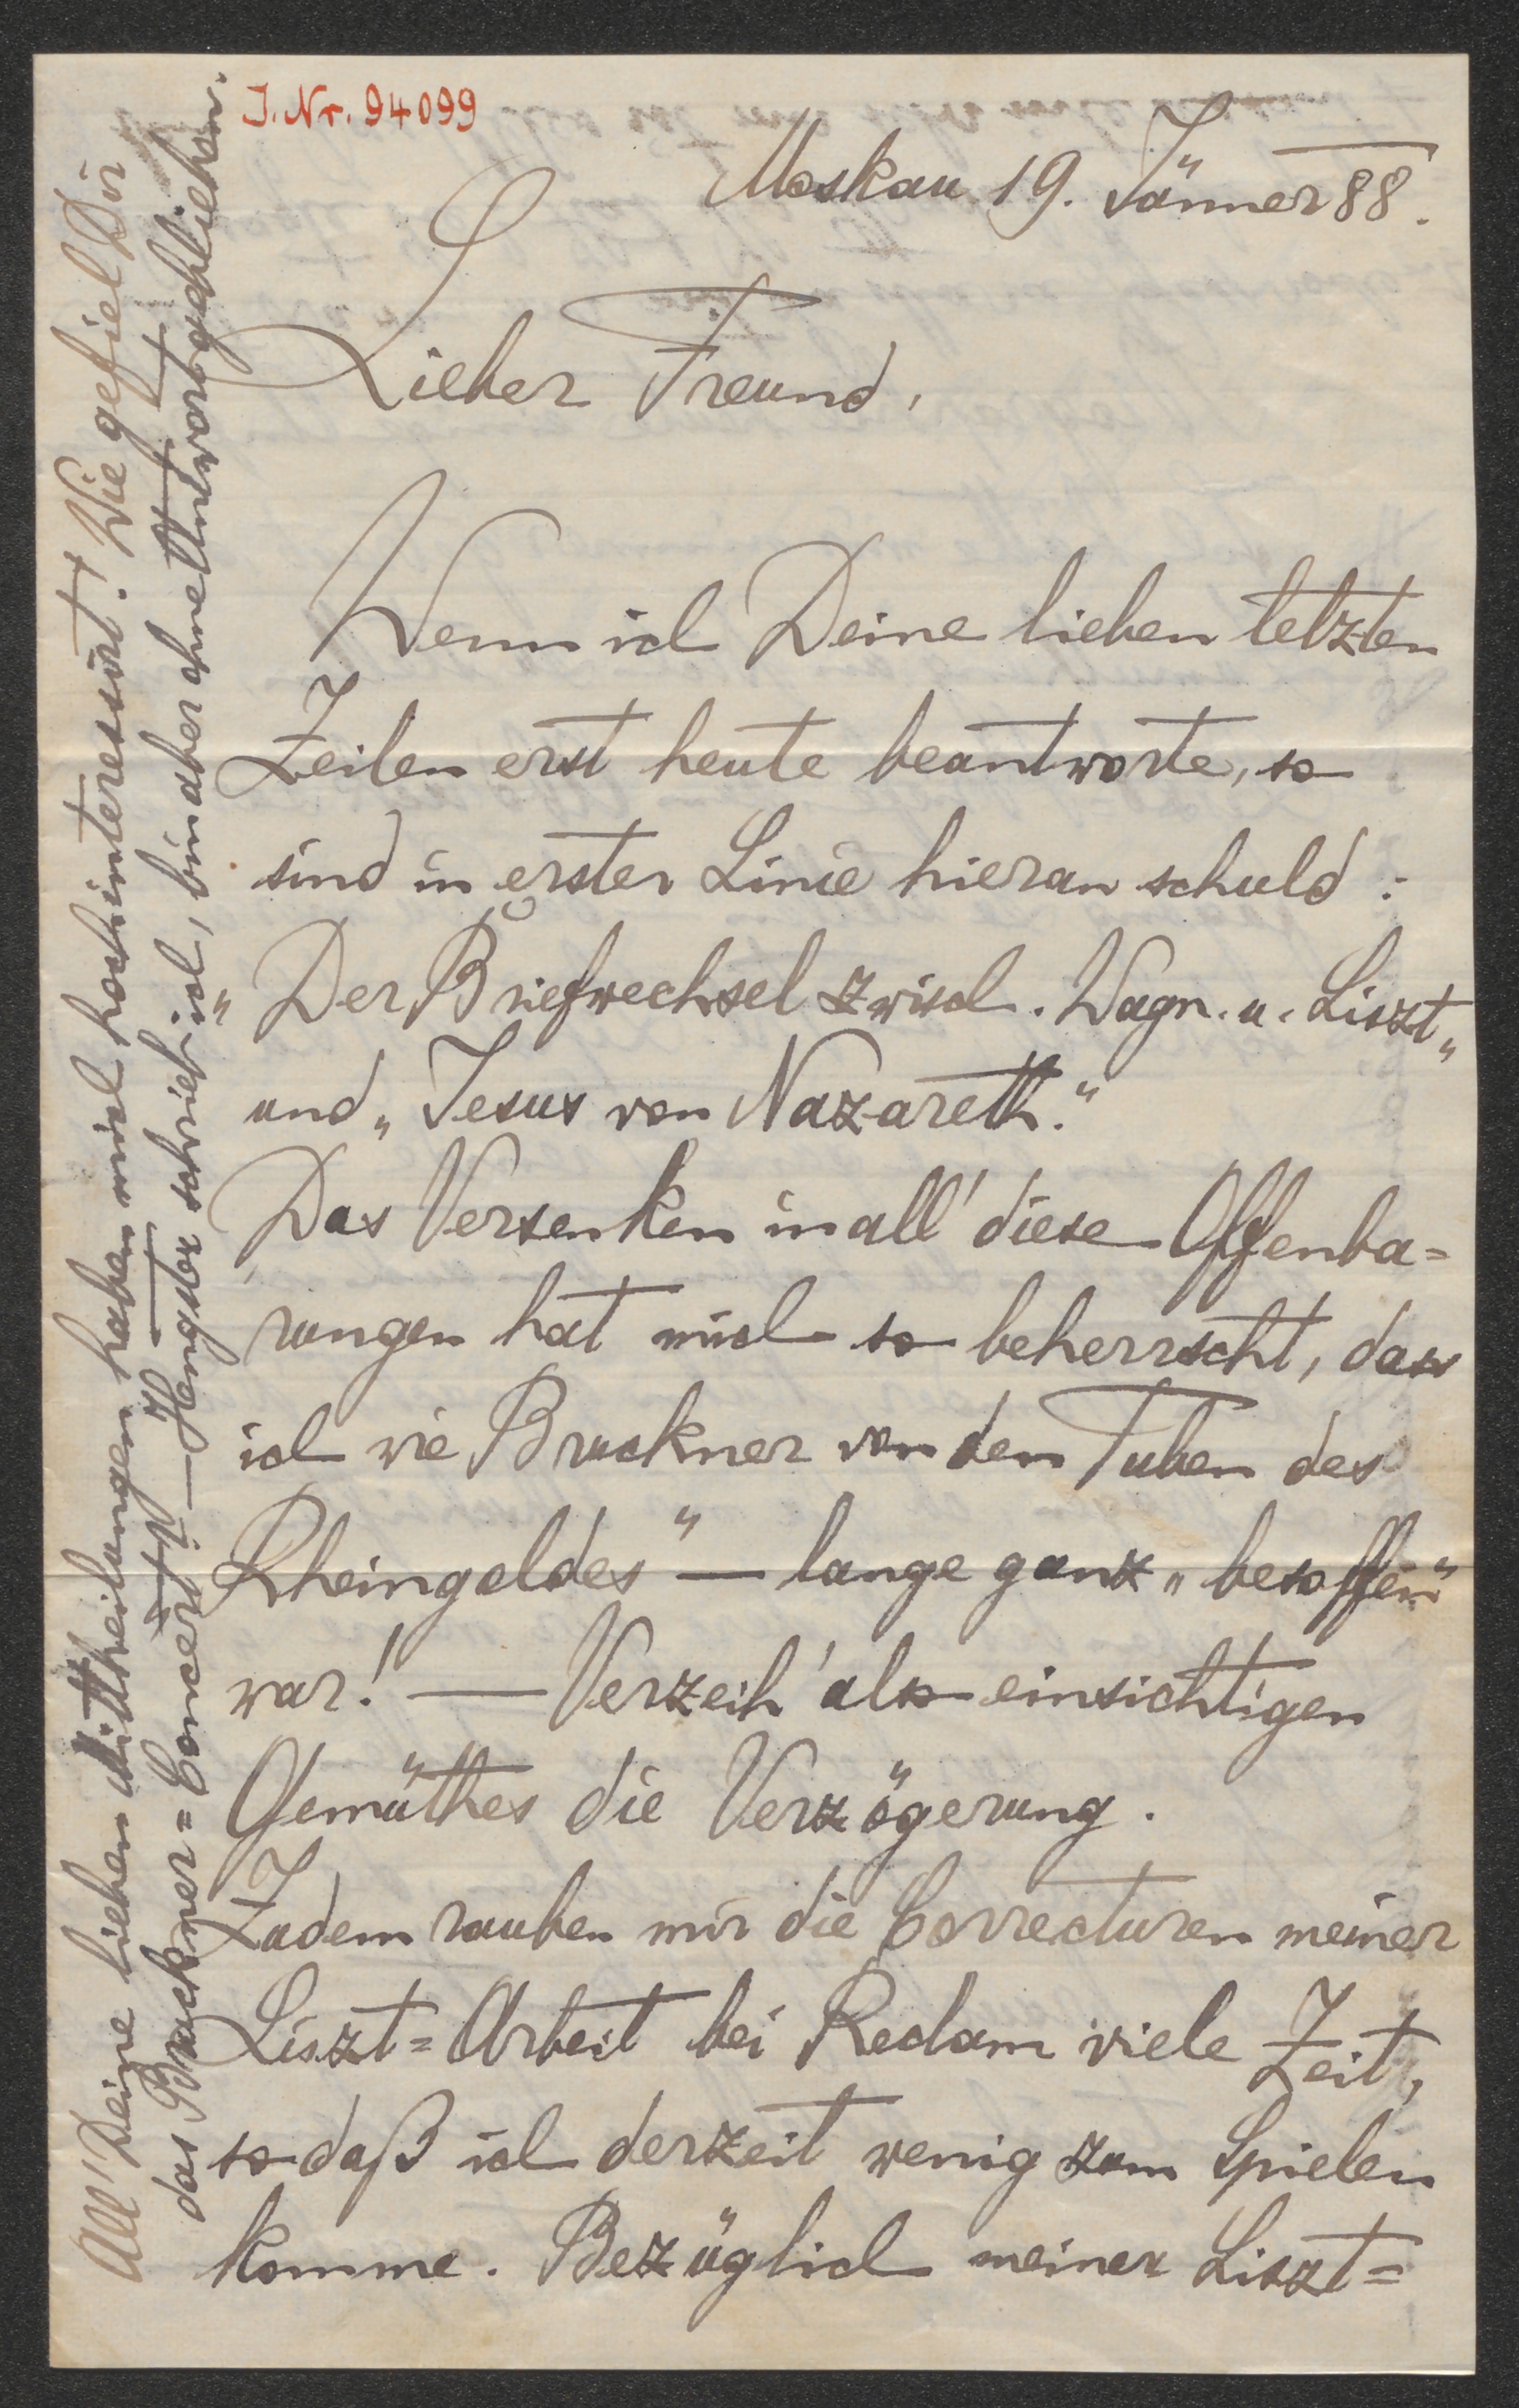 J. Nr. 94099
Moskau 19. Jänner 88.
Lieber Freund,
Wenn ich Deine lieben letzten
Zeilen erst heute beantworte, so
sind in erster Linie hieran schuld:
„Der Briefwechsel zwisch. Wagn. u. Liszt„
und „Jesus von Nazareth."
Das Versenken in all' diese Offenba=
rungen hat mich so beherrscht, dass
ich wie Bruckner von den Tuben des
Rheingoldes" — lange ganz „besoffen"
war! — Verzeih' also einsichtigen
Gemüthes die Verzögerung.
Zudem rauben mir die Correcturen meiner
Liszt=Arbeit bei Reclam viele Zeit,
so daß ich derzeit wenig zum Spielen
komme. Bezüglich meiner Liszt=
All' Deine lieben Mittheilungen haben mich hochinteressirt! Wie gefiel Dir
das Bruckner=Concert? — Hengster schrieb ich, bin aber ohne Antwort geblieben.